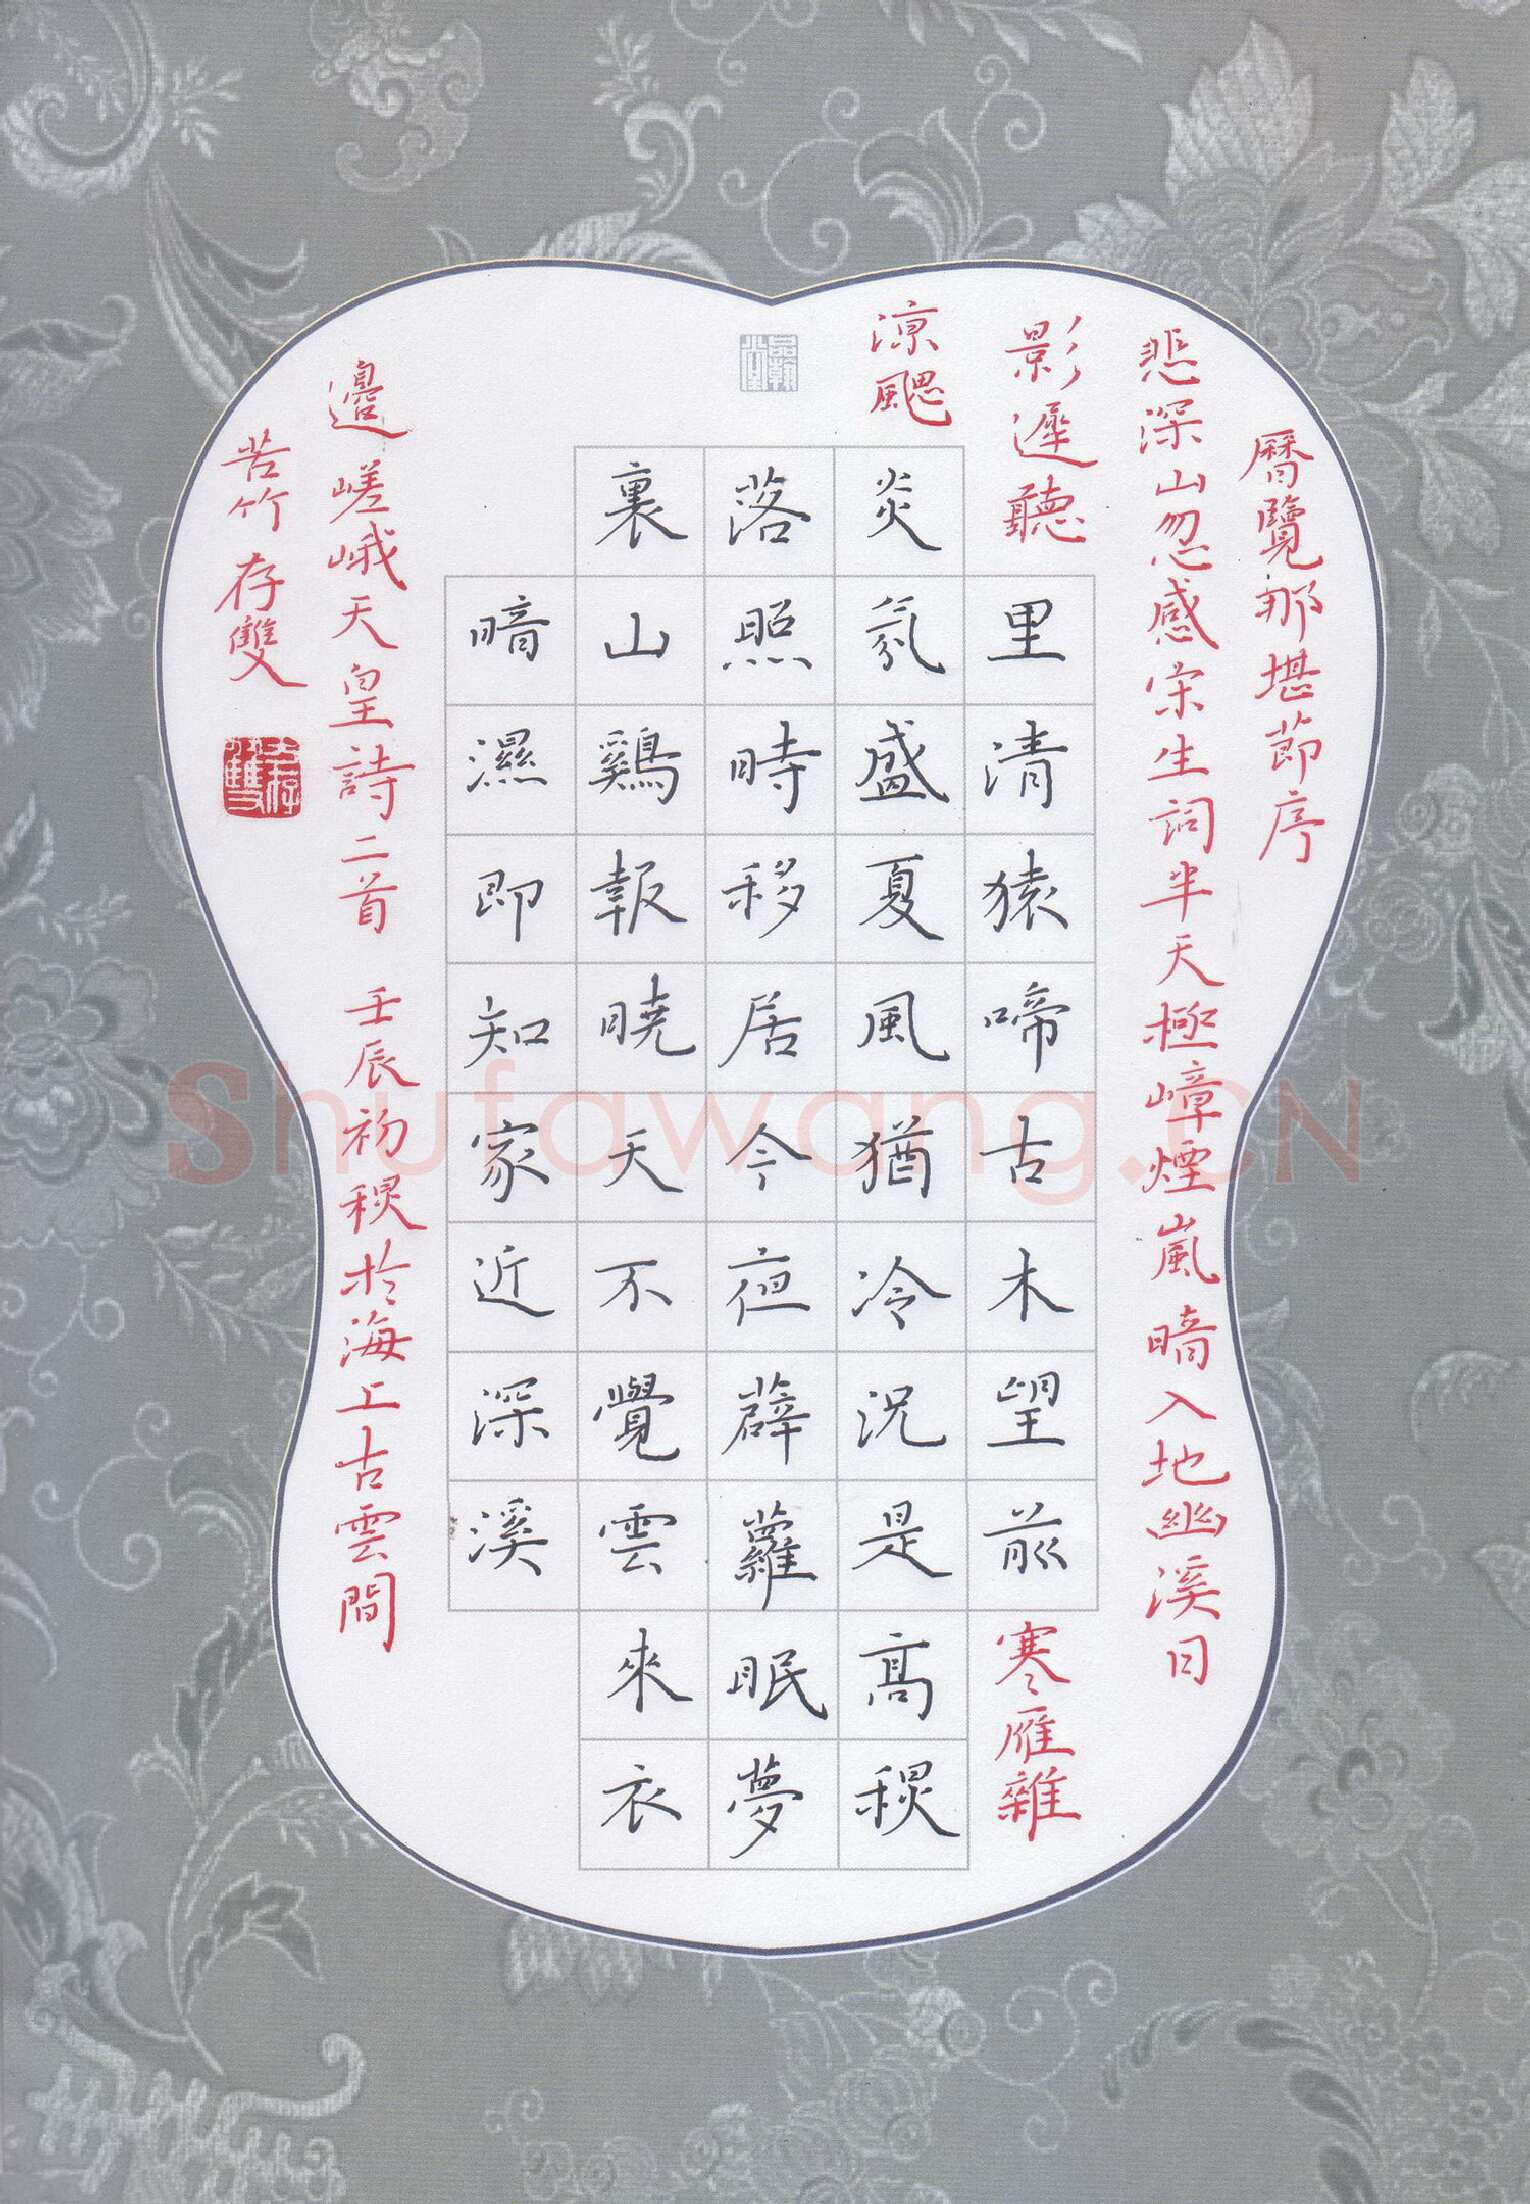 曆覽那堪節序
悲深山忽感宋生詞半天極嶂煙嵐暗入地幽溪日
影遲聽里清猿啼古木望前寒雁雜
涼颸炎氛盛夏風猶冷況是高秋
落照時移居今夜薜蘿眠夢
裏山鷄報曉天不覺雲來衣
暗濕即知家近深溪
邊嵯峨天皇詩二首 壬辰初秋於海上古雲間
苦竹存雙
Shufawang.CN